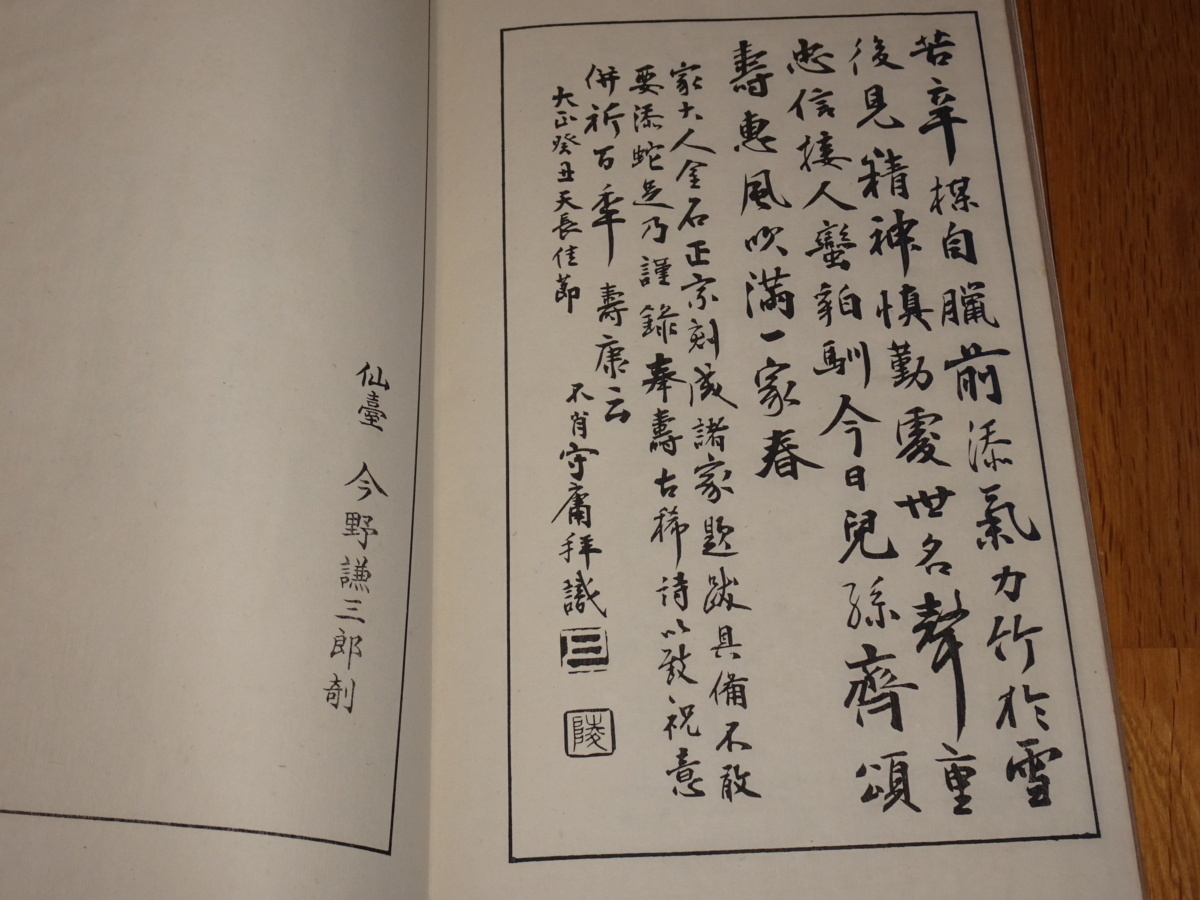 苦辛楳自臘前添氣力竹於雪
後見精神慎勤處世名聲重
忠信接人蠻貊馴今日兒孫齊頌
壽惠風吹滿一家春
家大人金石正宗刻成諸家題跋具備不敢
要添蛇足乃謹錄奉壽古稀詩以致祝意
併祈百年壽康云
大正癸丑天長佳節
不肖守庸拜識
三
陵
仙臺 今野謙三郎刻